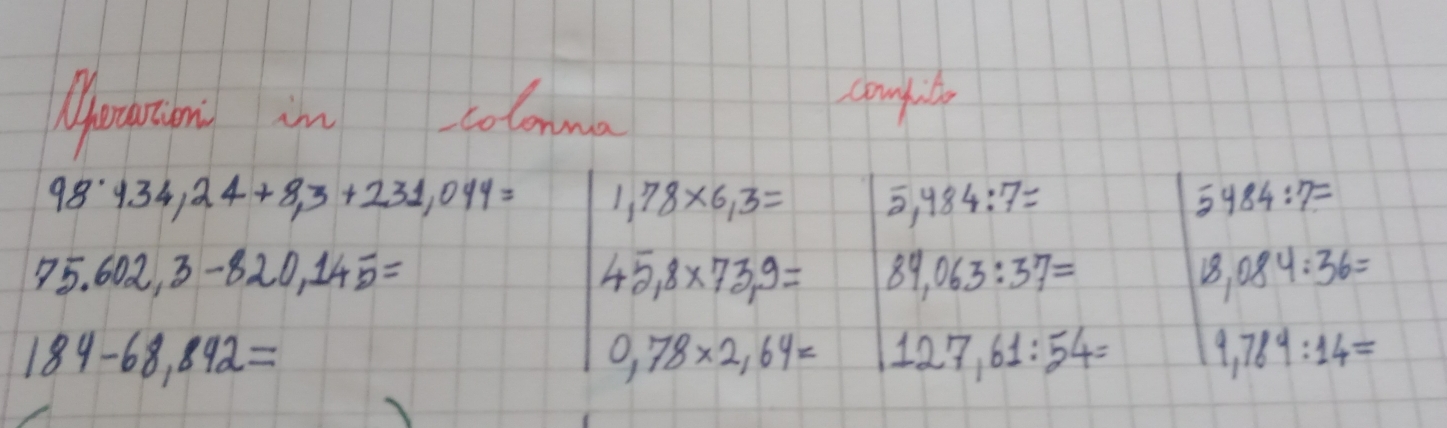 Operazioni in colonna
compito
98·434,24+8,3+231,044=
75.602,3-820,145=
184-68,842=
1,78×6,3=
45,8×73,9=
0,78×2,64=
5,484:7=
84,063:37=
127,61:54=
5484:7=
18,084:36=
4,784:14=